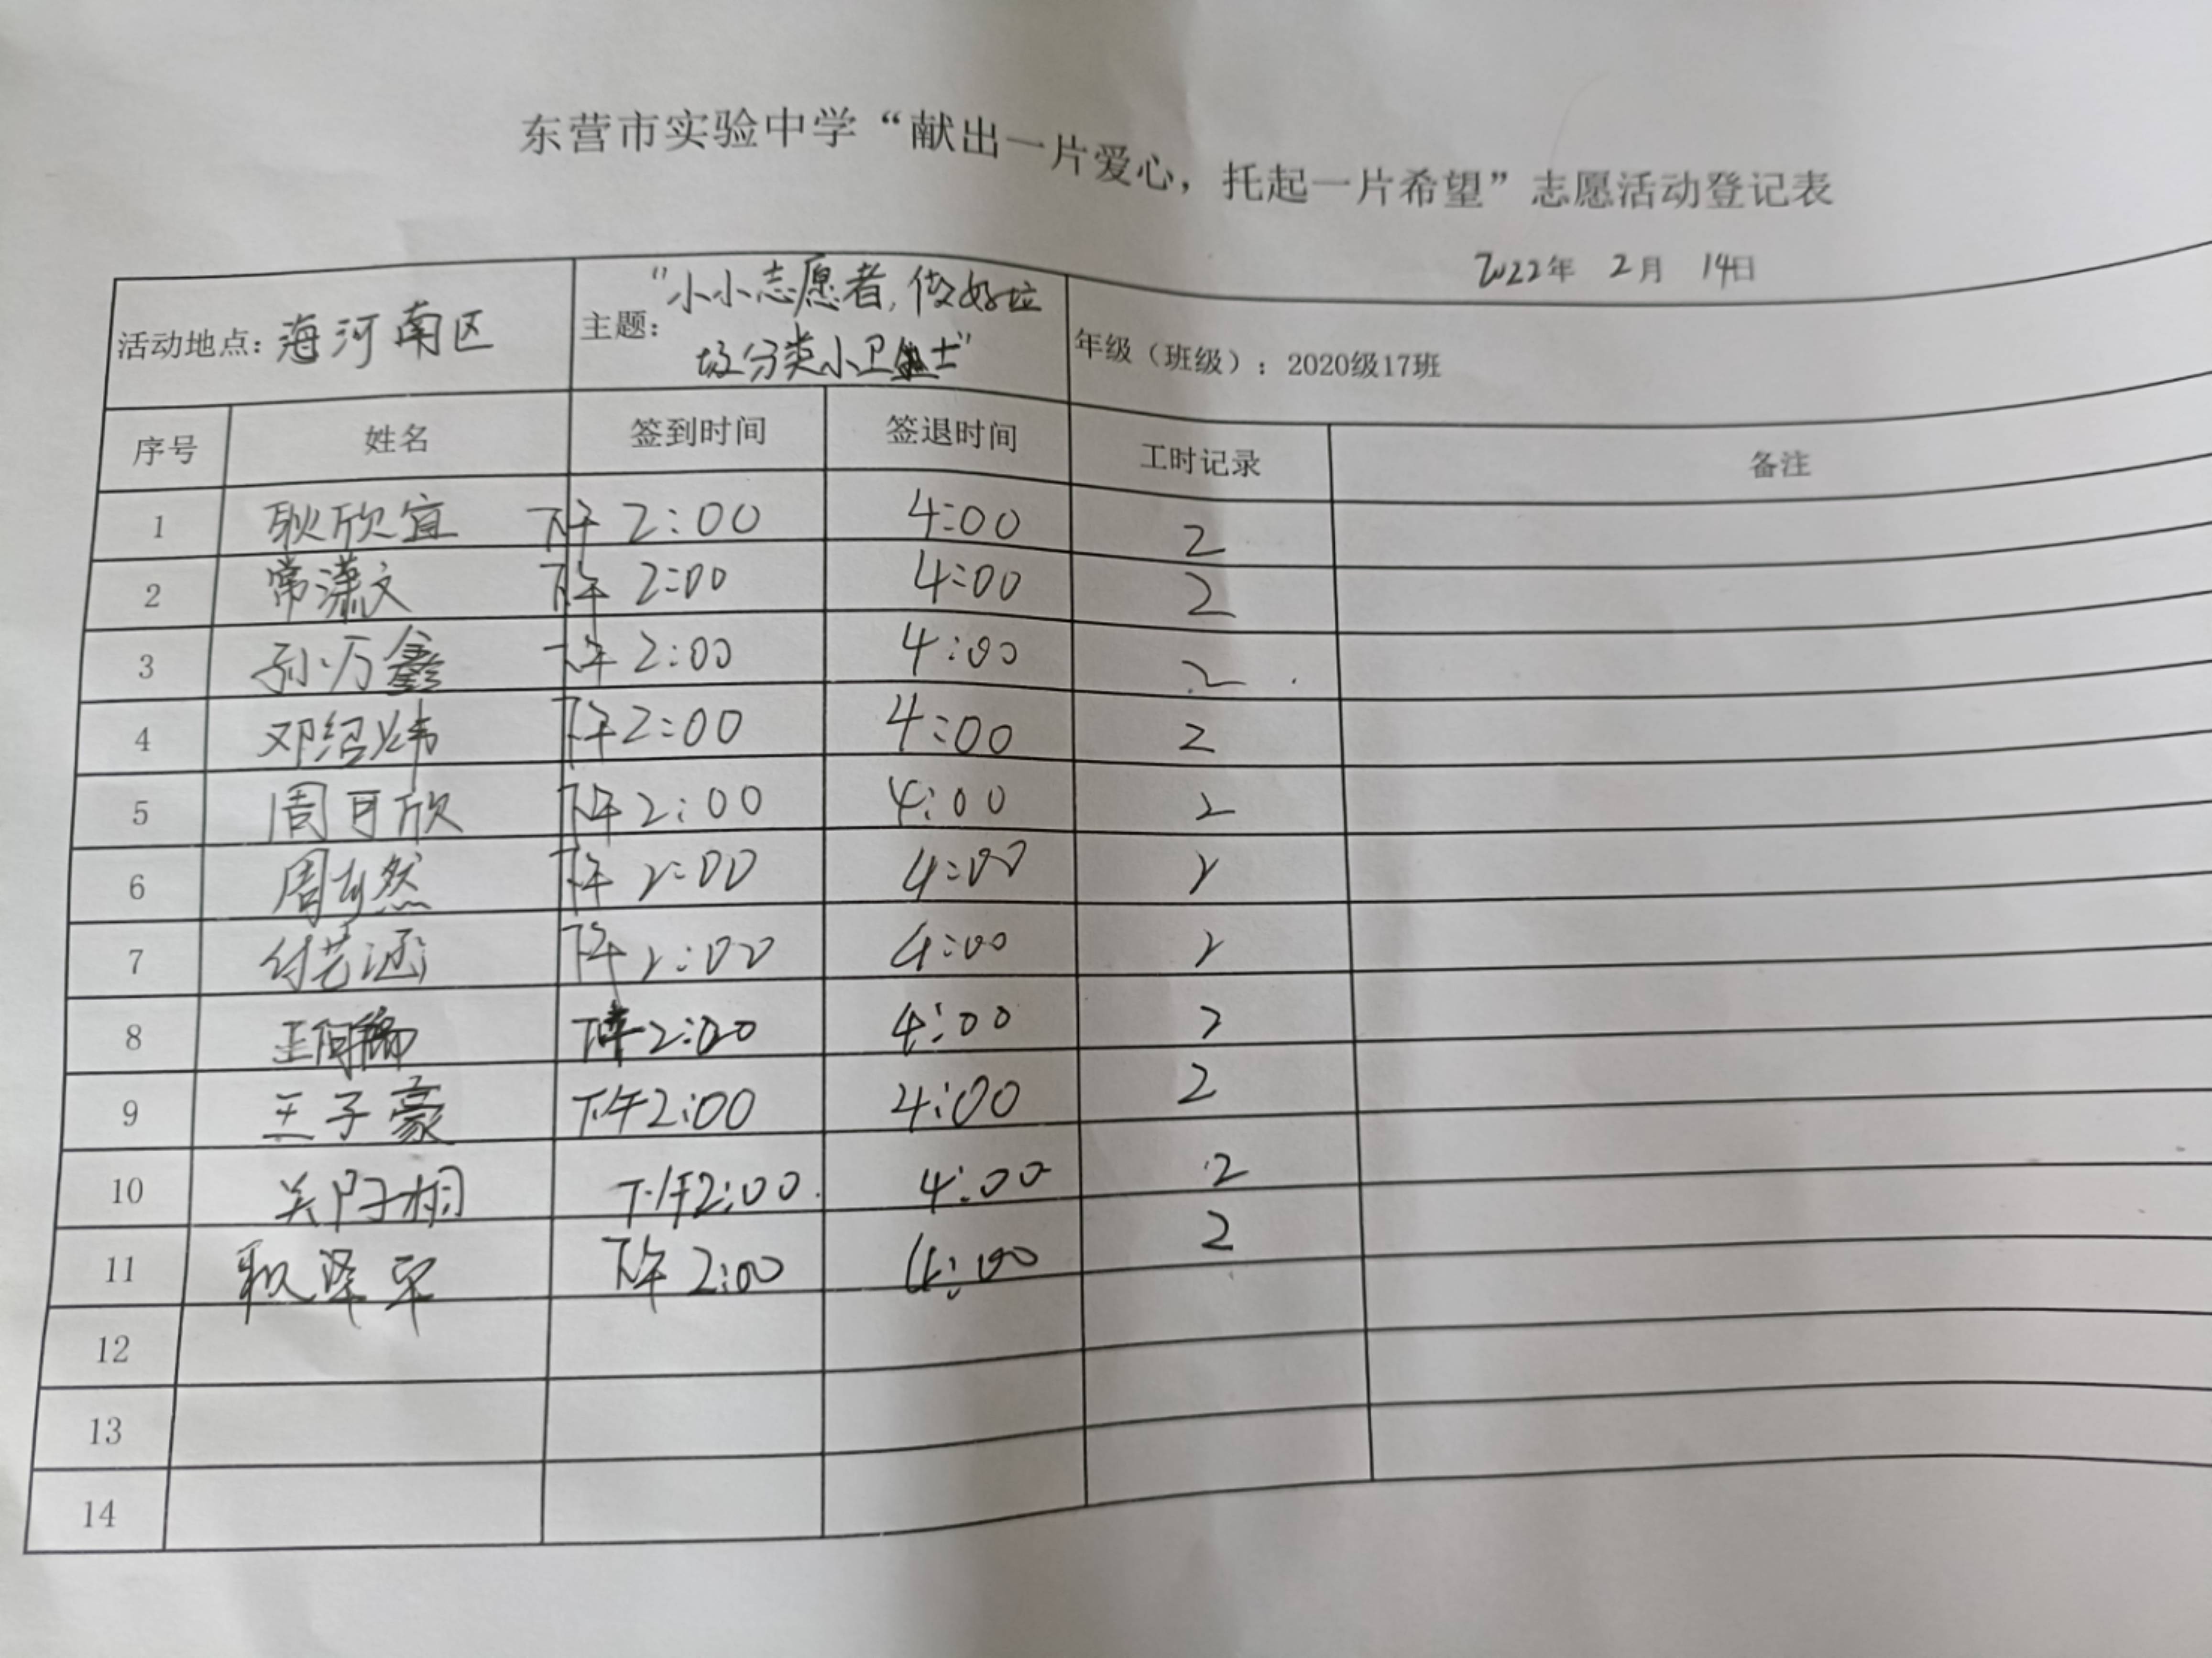 东营市实验中学“献出一片爱心，托起一片希望”志愿活动登记表
2022年 2月 14日
活动地点：海河南区 主题：“小小志愿者，做好垃圾分类小卫士” 年级（班级）：2020级17班
序号 姓名 签到时间 签退时间 工时记录 备注
1 耿欣宜 下午 2:00 4:00 2
2 常潇文 下午 2:00 4:00 2
3 孙万鑫 下午 2:00 4:00 2
4 邓绍炜 下午 2:00 4:00 2
5 周可欣 下午 2:00 4:00 2
6 下午 2:00 4:00 2
7 付艺涵 下午 2:00 4:00 2
8 下午 2:00 4:00 2
9 王子豪 下午 2:00 4:00 2
10 下午 2:00 4:00 2
11 下午 2:00 4:00 2
12
13
14